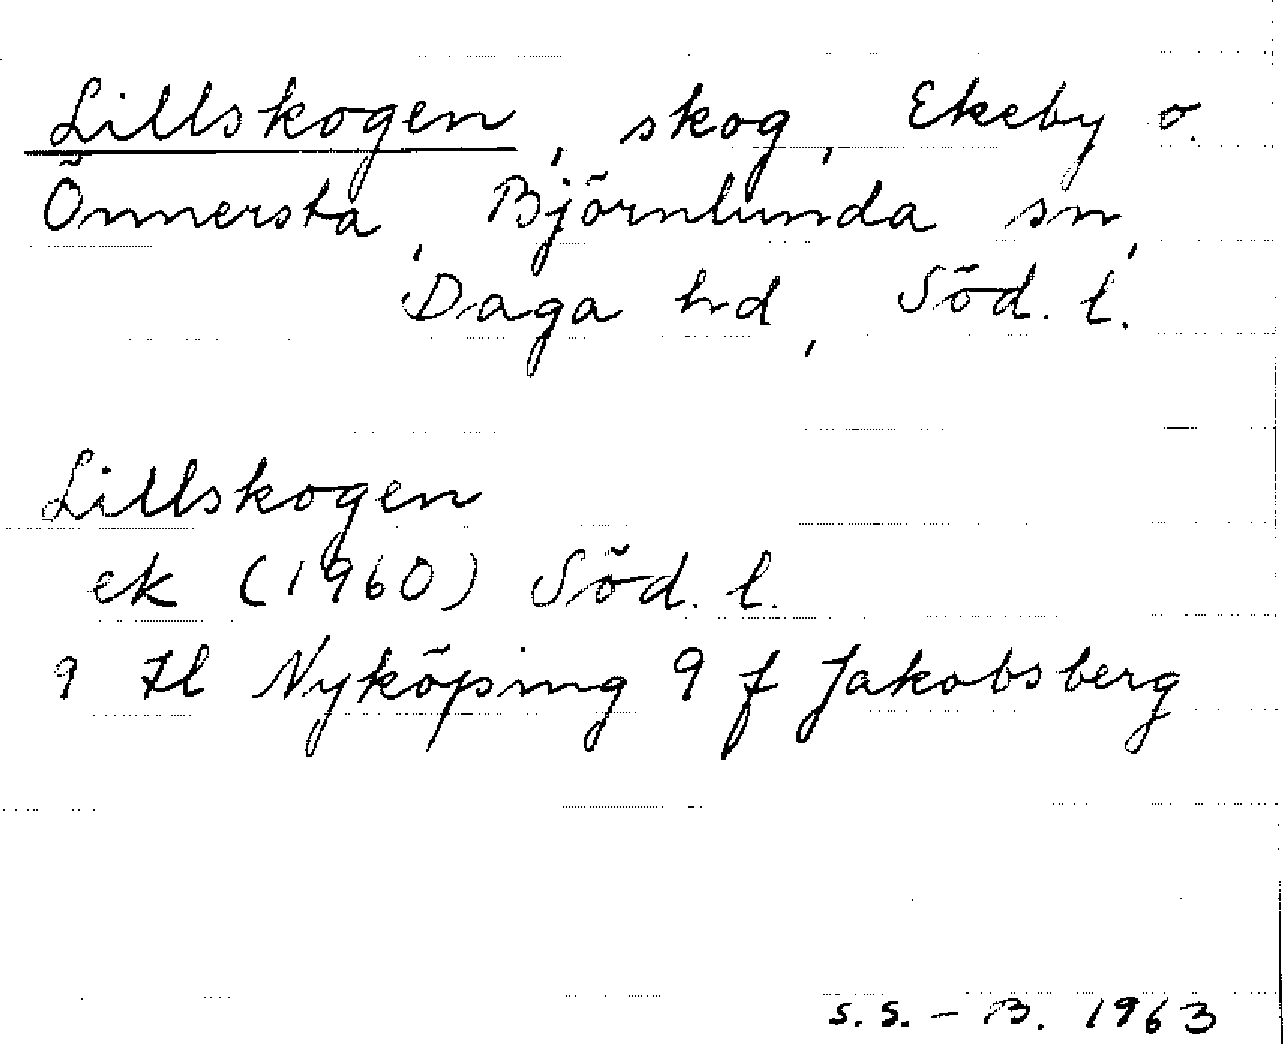 Lillskogen, skog, Ekeby o.
Önnersta, Björnlunda sn,
Daga hd, Söd. l.
Lillskogen
ek (1960) Söd. l.
9 H l Nyköping 9 f Jakobsberg
S.S. - B. 1963